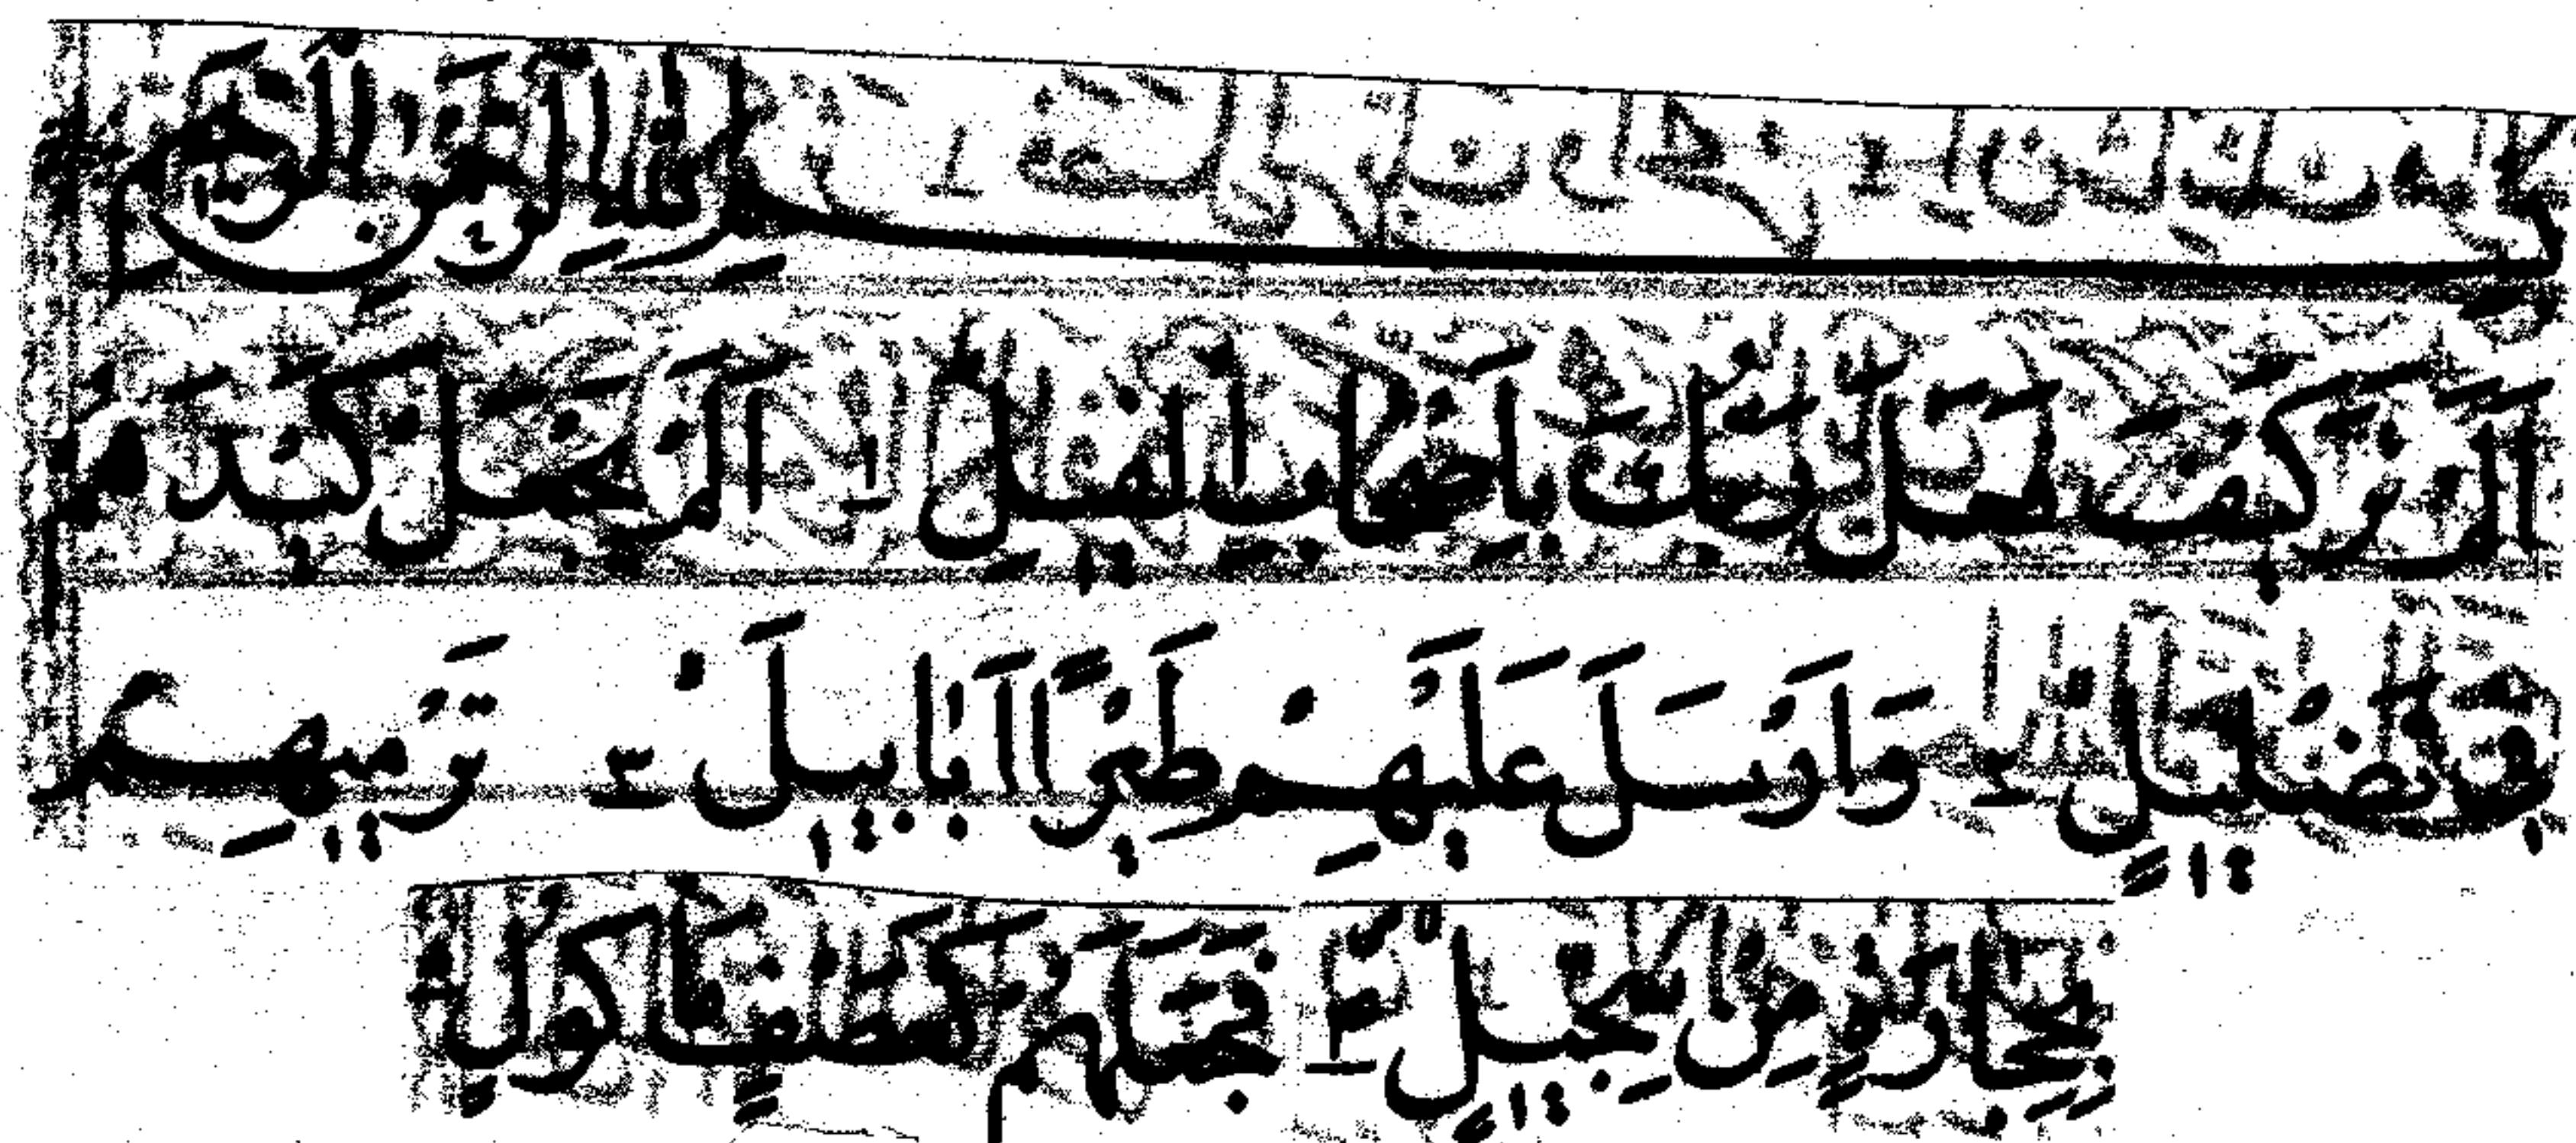 بِسْمِ اللهِ الرَّحْمٰنِ الرَّحِيْمِ
اَلَمْ تَرَ كَيْفَ فَعَلَ رَبُّكَ بِاَصْحٰبِ الْفِيْلِ ۱ اَلَمْ يَجْعَلْ كَيْدَهُمْ
فِيْ تَضْلِيْلٍ ۲ وَاَرْسَلَ عَلَيْهِمْ طَيْرًا اَبَابِيْلَ ۳ تَرْمِيْهِمْ
بِحِجَارَةٍ مِّنْ سِجِّيْلٍ ۴ فَجَعَلَهُمْ كَعَصْفٍ مَّاْكُوْلٍ